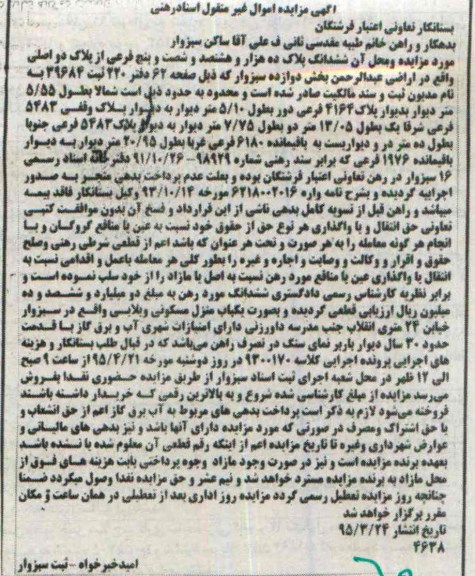 آگهی مزایده اموال غیر منقول اسنادرهنی
بستانکار تعاونی اعتبار فرشتگان
بدهکار و راهن خانم طیبه مقدسی ثانی ف علی آقا ساکن سبزوار
مورد مزایده ومحل آن ششدانگ پلاک ده هزار و هشتصد و شصت و پنج فرعی از پلاک دو اصلی
واقع در اراضی عبدالرحمن بخش دوازده سبزوار که ذیل صفحه ۶۲ دفتر ۲۲۰ ثبت ۳۹۶۸۴ به
نام مدیون ثبت و سند مالکیت صادر شده است و محدود به حدود ذیل است شمالا بطول ۵/۵۵
متر دیوار بدیوار پلاک ۴۱۶۴ فرعی دور بطول ۵/۱۰ متر دیوار به دیوار پلاک وقفی ۵۴۸۳
فرعی شرقا یک بطول ۱۳/۰۵ متر دو بطول ۷/۷۵ متر دیوار به دیوار پلاک ۵۴۸۳ فرعی جنوبا
بطول ده متر در و دیواریست به باقیمانده ۶۱۸۰ فرعی غربا بطول ۲۰/۹۵ متر دیوار به دیوار
باقیمانده ۱۹۷۶ فرعی که برابر سند رهنی شماره ۹۸۹۲۹-۹۱/۱۰/۲۶ دفترخانه اسناد رسمی
۱۶ سبزوار در رهن تعاونی اعتبار فرشتگان بوده و بعلت عدم پرداخت بدهی منجر به صدور
اجراییه گردیده و بشرح نامه وارد ۶۲۱۸۰۰۲۰۱۶ مورخه ۹۳/۱۰/۱۴ وکیل بستانکار فاقد بیمه
میباشد و راهن قبل از تسویه کامل بدهی ناشی از این قرارداد و فسخ آن بدون موافقت کتبی
تعاونی حق انتقال و یا واگذاری هر نوع حق از حقوق خود نسبت به عین یا منافع گروگان و یا
انجام هر گونه معامله را به هر صورت و تحت هر عنوان که باشد اعم از قطعی شرطی رهنی وصلح
حقوق و اقرار و وکالت و وصایت و اجاره و غیره را بطور کلی هر معامله یاعمل و اقدامی نسبت به
انتقال یا واگذاری عین یا منافع مورد رهن نسبت به اصل یا مازاد را از خود سلب نموده است و
برابر نظریه کارشناس رسمی دادگستری ششدانگ مورد رهن به مبلغ دو میلیارد و ششصد و ده
میلیون ریال ارزیابی قطعی گردیده و بصورت یکباب منزل مسکونی ویلایی واقع در سبزوار
خیابان ۲۴ متری انقلاب جنب مدرسه داورزنی دارای امتیازات شهری آب و برق گاز با قدمت
حدود ۳۰ سال دیوار باربر نمای سنگ در تصرف راهن می‌باشد که در قبال طلب بستانکار و هزینه
های اجرایی پرونده اجرایی کلاسه ۹۳۰۰۱۷۰ در روز دوشنبه مورخه ۹۵/۴/۲۱ از ساعت ۹ صبح
الی ۱۲ ظهر در محل شعبه اجرای ثبت اسناد سبزوار از طریق مزایده حضوری نقدا بفروش
می‌رسد مزایده از مبلغ کارشناسی شده شروع و به بالاترین قمتی که خریدار داشته باشند
فروخته می‌شود لازم به ذکر است پرداخت بدهی های مربوط به آب برق گاز اعم از حق انشعاب و
یا حق اشتراک ومصرف در صورتی که مورد مزایده دارای آنها باشد و نیز بدهی های مالیاتی و
عوارض شهرداری وغیره تا تاریخ مزایده اعم از اینکه رقم قطعی آن معلوم شده یا نشده باشد
بعهده برنده مزایده است و نیز در صورت وجود مازاد وجوه پرداختی بابت هزینه های فوق از
محل مازاد به برنده مزایده مسترد خواهد شد و نیم عشر و حق مزایده نقدا وصول میگردد ضمنا
چنانچه روز مزایده تعطیل رسمی گردد مزایده روز اداری بعد از تعطیلی در همان ساعت و مکان
مقرر برگزار خواهد شد
تاریخ انتشار ۹۵/۳/۲۴
۴۶۳۸
امیدخبرخواه - ثبت سبزوار